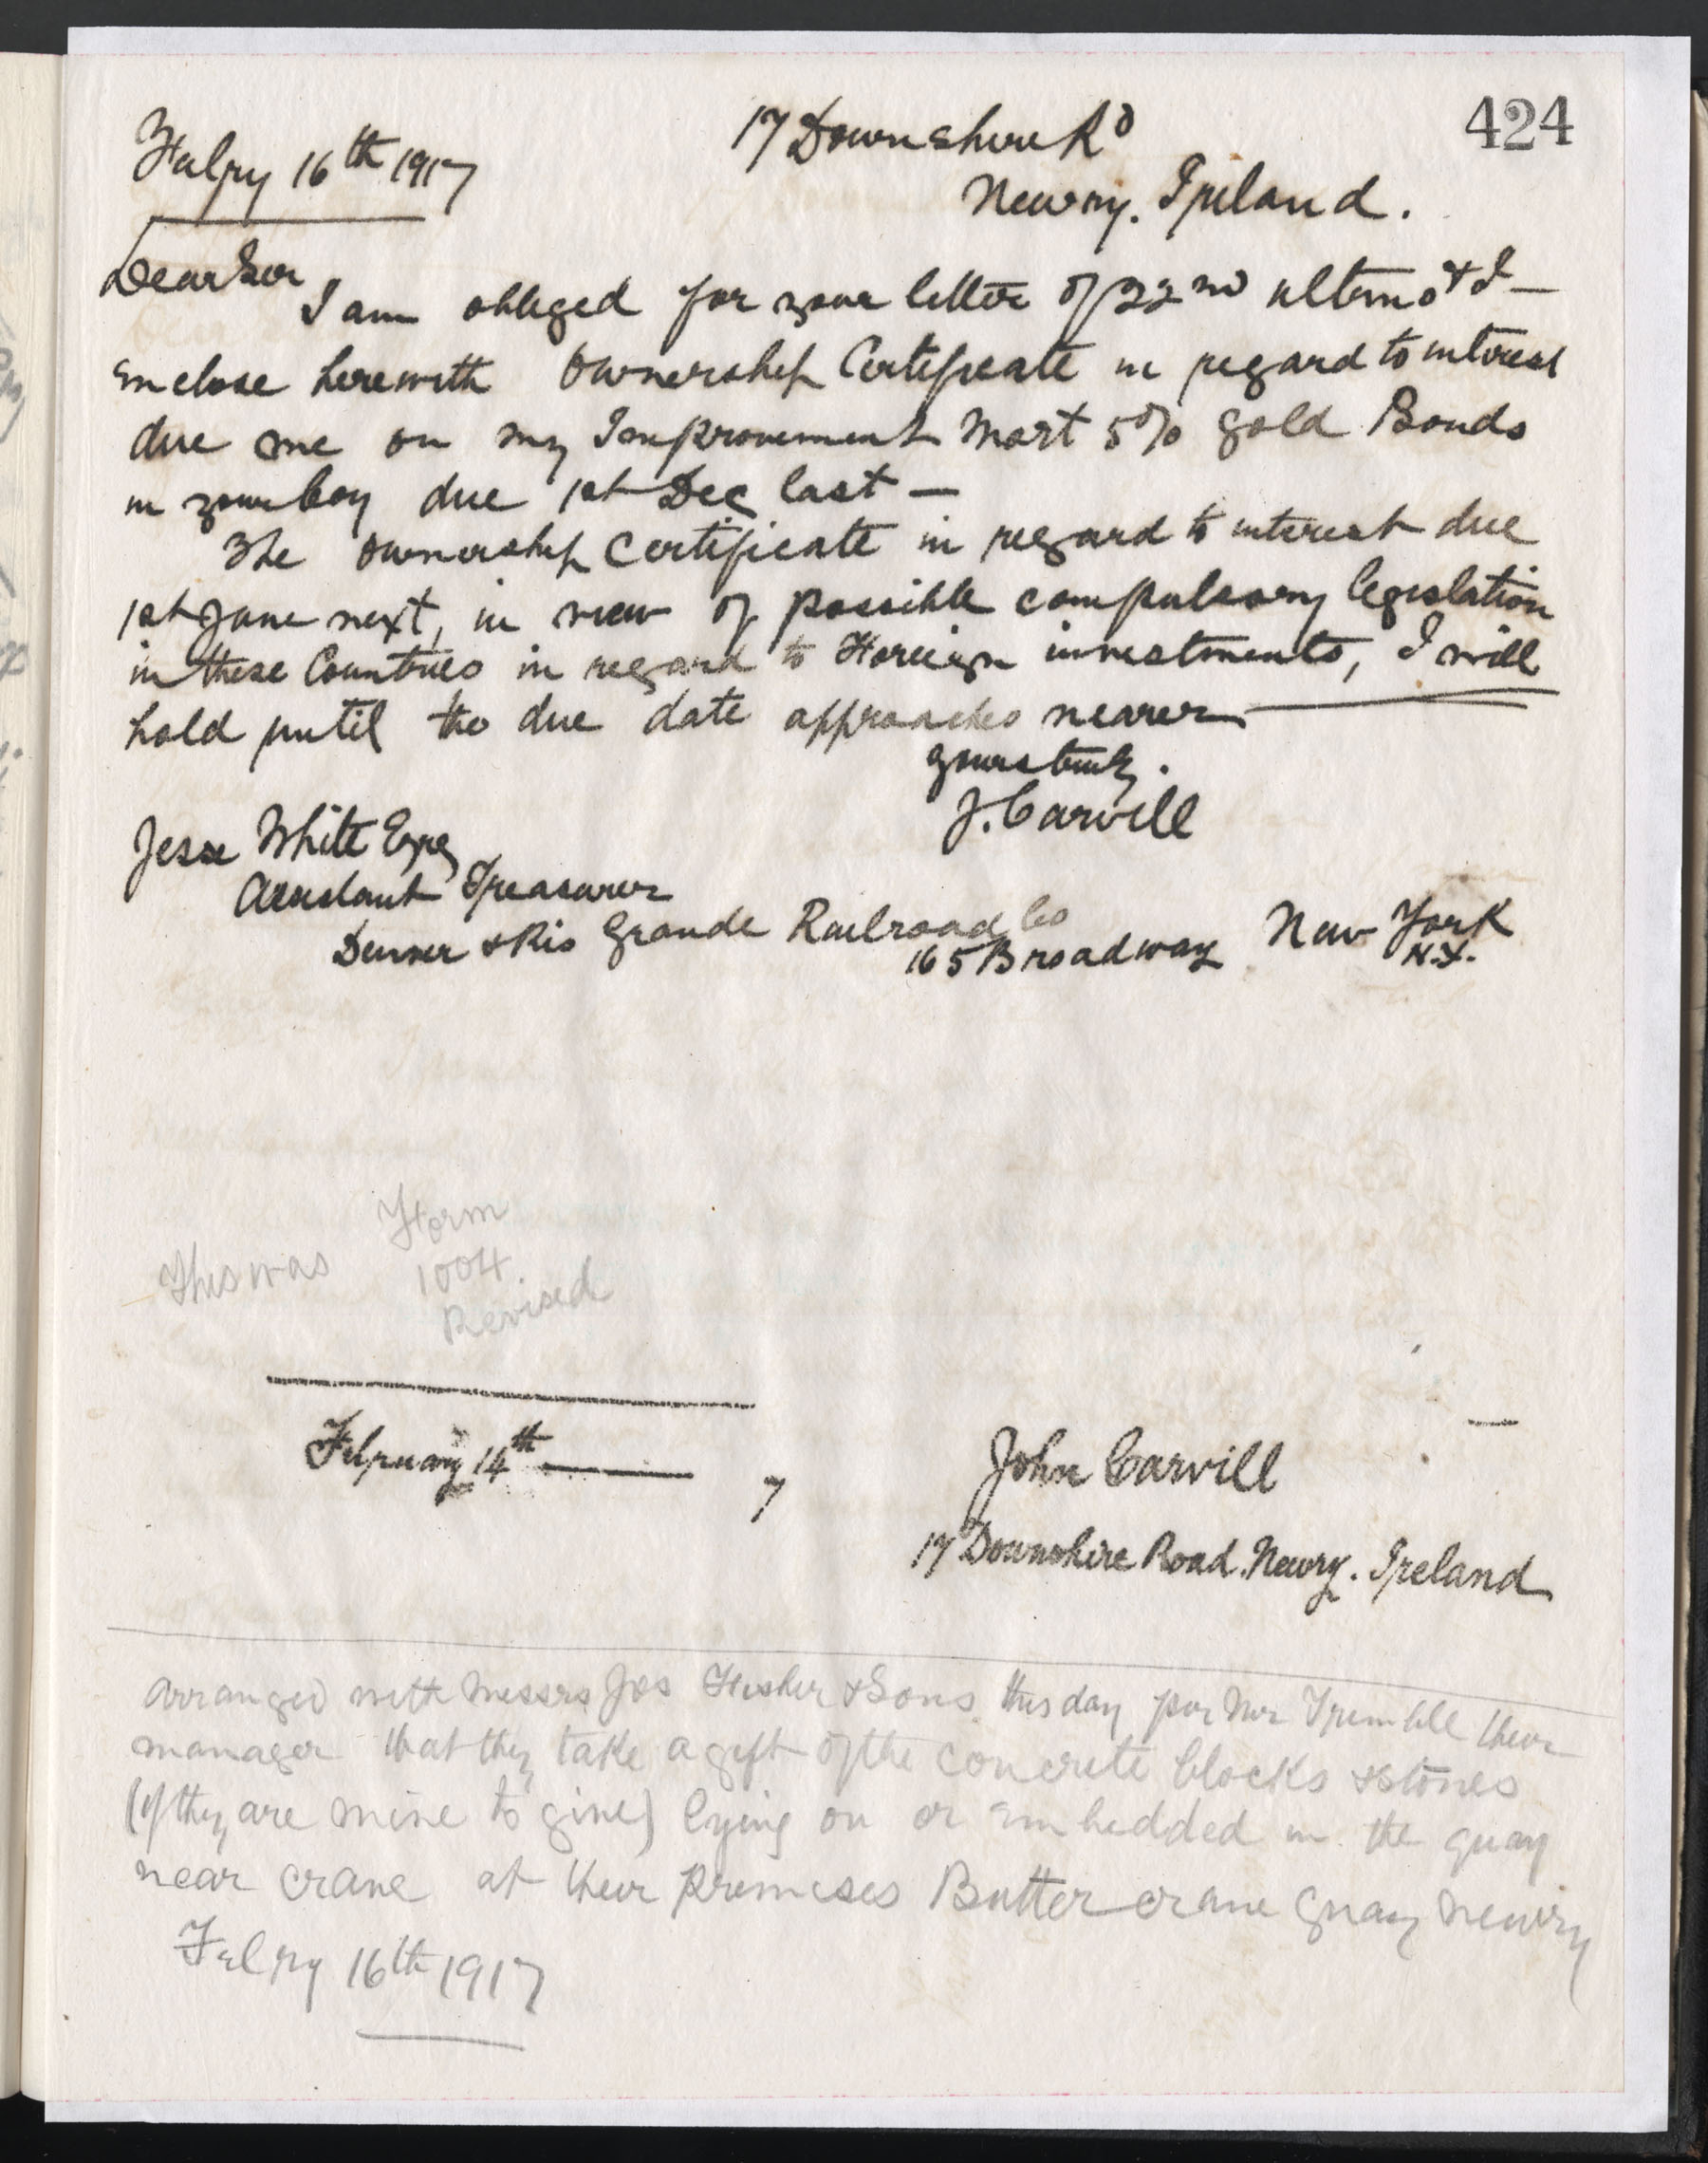 424
17 Downshire Rd
Febry 16th 1917
Newry. Ireland.
Dear Sir
I am obliged for your letter of 22nd ultimo & I —
enclose herewith Ownership Certificate in regard to interest
due me on my Improvement Mort 5% Gold Bonds
in your Coy due 1st Dec last —
The Ownership Certificate in regard to interest due
1st June next, in view of possible compulsory legislation
in these Countries in regard to Foreign investments, I will
hold until the due date approaches nearer —
Yours truly.
J. Carvill
Jesse White Esq
Assistant Treasurer
Denver & Rio Grande Railroad Co
165 Broadway New York
N.Y.
This was Form
1004
Revised
February 14th — 7
John Carvill
17 Downshire Road. Newry. Ireland
Arranged with Messrs Jos Fisher & Sons this day per Mr Tremble their
manager that they take a gift of the concrete blocks & stones
(if they are mine to give) lying on or embedded in the quay
near crane at their premises Buttercrane Quay Newry
Febry 16th 1917